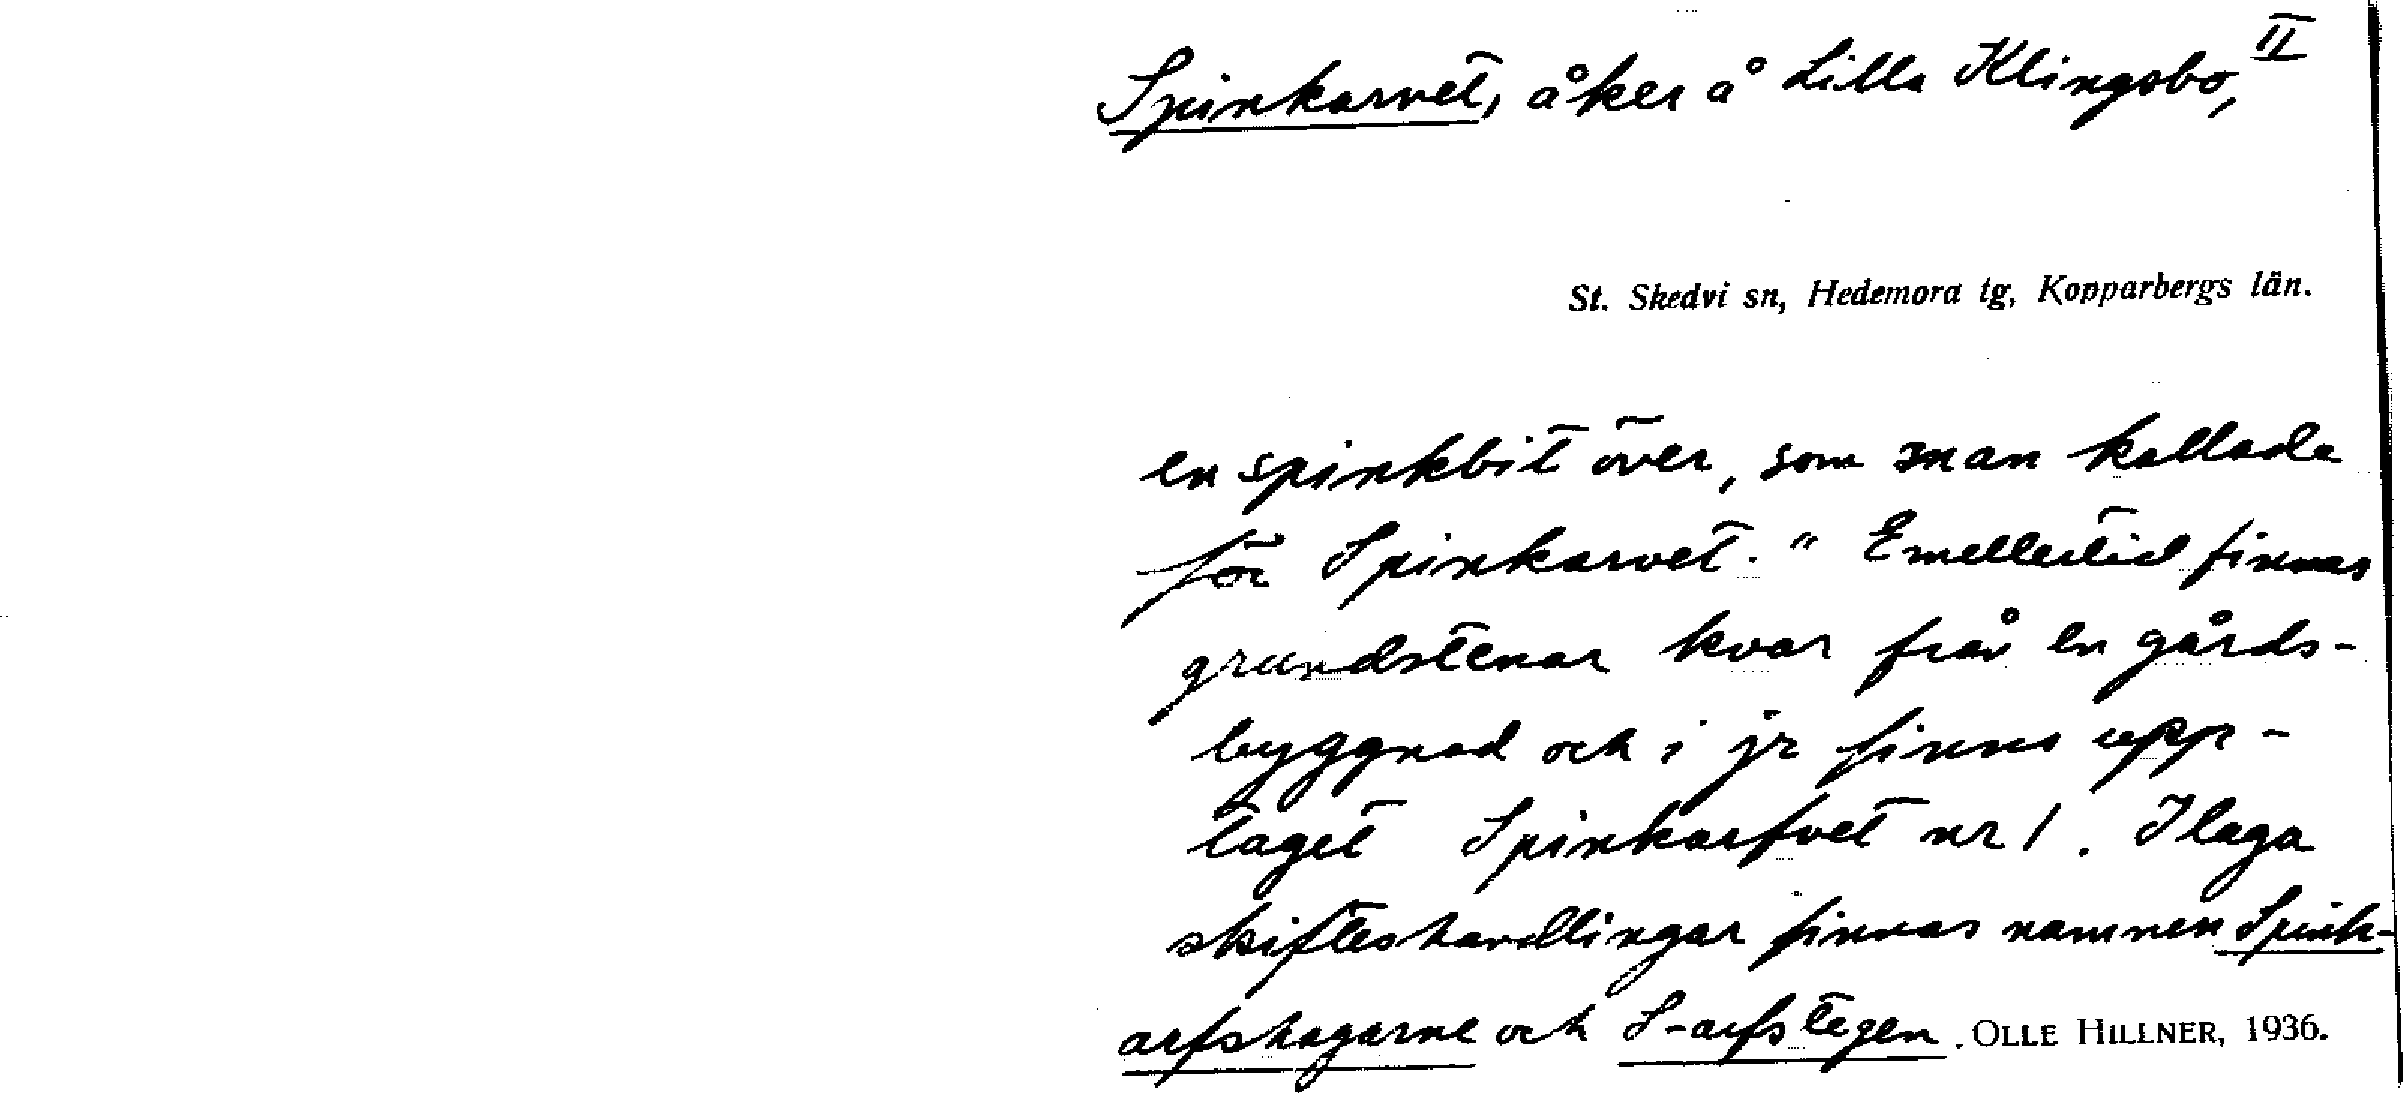 Spinkarvet, åker å Lilla Klingsbo, II
St. Skedvi sn, Hedemora tg, Kopparbergs län.
en spinkbit över, som man kallade
för Spinkarvet." Emellertid finnas
grundstenar kvar från en gårds-
byggnad och i jr finns upp-
taget Spinkarfvet nr 1. I laga
skifteshandlingar finnas namnen Spink-
arfshagarne och S-arfstegen. OLLE HILLNER, 1936.